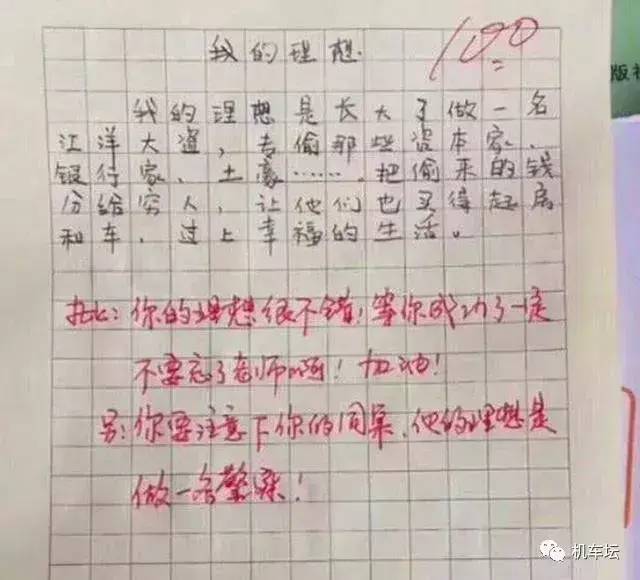 我的理想
100
版社
我的理想是长大了做一名
江洋大盗，专偷那些资本家、
银行家、土豪……，把偷来的钱
分给穷人，让他们也买得起房
和车，过上幸福的生活。
批：你的理想很不错！等你成功了一定
不要忘了老师啊！加油！
另：你要注意下你的同桌，他的理想是
做一名警察！
机车坛